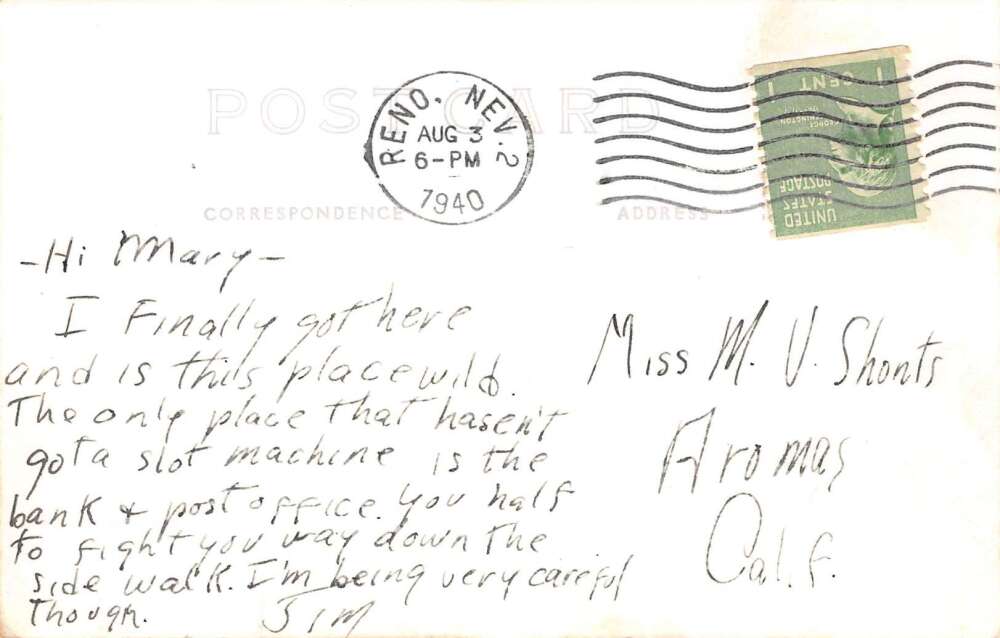 POST CARD
RENO, NEV. 2
AUG 3
6-PM
1940
1 CENT 1
GEORGE WASHINGTON
UNITED
STATES
POSTAGE
CORRESPONDENCE
ADDRESS
-Hi Mary-
I Finally got here
and is this place wild.
The only place that hasen't
got a slot machine is the
bank + post office. You half
to fight you way down the
side walk. I'm being very careful
though.
Jim
Miss M. V. Shonts
Aromas
Calif.